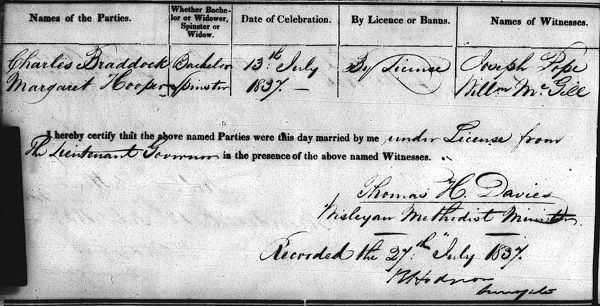 Names of the Parties. Whether Bachelor or Widower, Spinster or Widow. Date of Celebration. By Licence or Banns. Names of Witnesses.
Charles Braddock Bachelor 13th July By License Joseph Pope
Margaret Hooper Spinster 1837. Willm McGill
I hereby certify that the above named Parties were this day married by me under License from
The Lieutenant Governor in the presence of the above named Witnesses.
Thomas H. Davies
Wesleyan Methodist Minister.
Recorded the 27th July 1837.